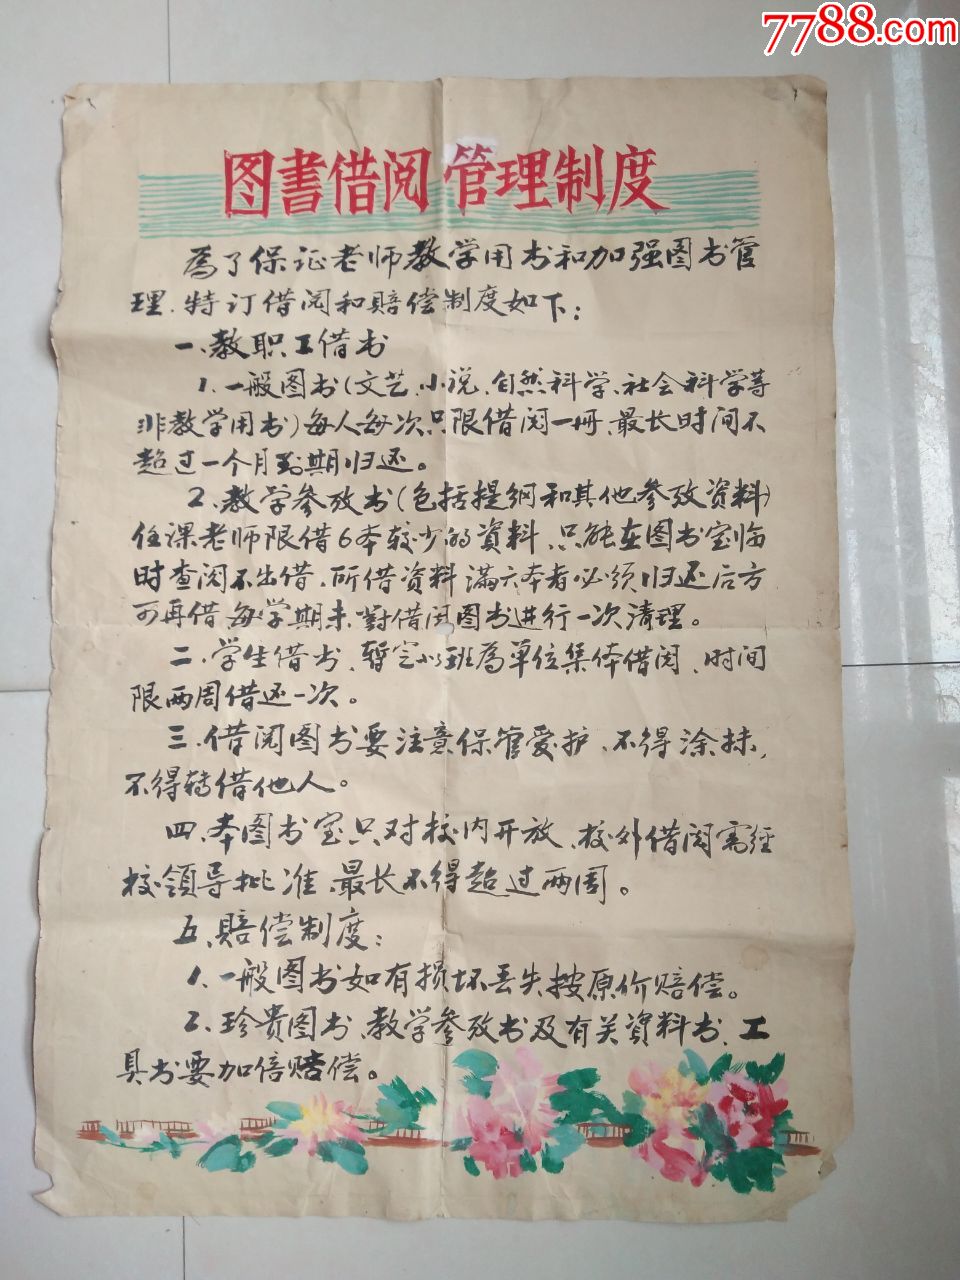 7788.com
图書借阅管理制度
為了保证老师教学用书和加强图书管
理.特订借阅和赔偿制度如下:
一、教职工借书
1.一般图书(文艺、小说、自然科学、社会科学等
非教学用书)每人每次只限借阅一冊、最长时间不
超过一个月到期归还。
2.教学参攷书(包括提綱和其他参攷资料)
任课老师限借6本较少的資料、只能在图书室临
时查阅不出借、所借资料满六本者必须归还后方
可再借、每学期末、對借阅图书进行一次清理。
二、学生借书、暫定以班為单位集体借阅、时间
限两周借还一次。
三、借阅图书要注意保管爱护、不得涂抹,
不得转借他人。
四、本图书室只对校内开放、校外借阅需经
校领导批准、最长不得超过两周。
五、赔偿制度:
1.一般图书如有损坏丢失按原价赔偿。
2.珍贵图书、教学参攷书及有关資料书、工
具书要加倍赔偿。